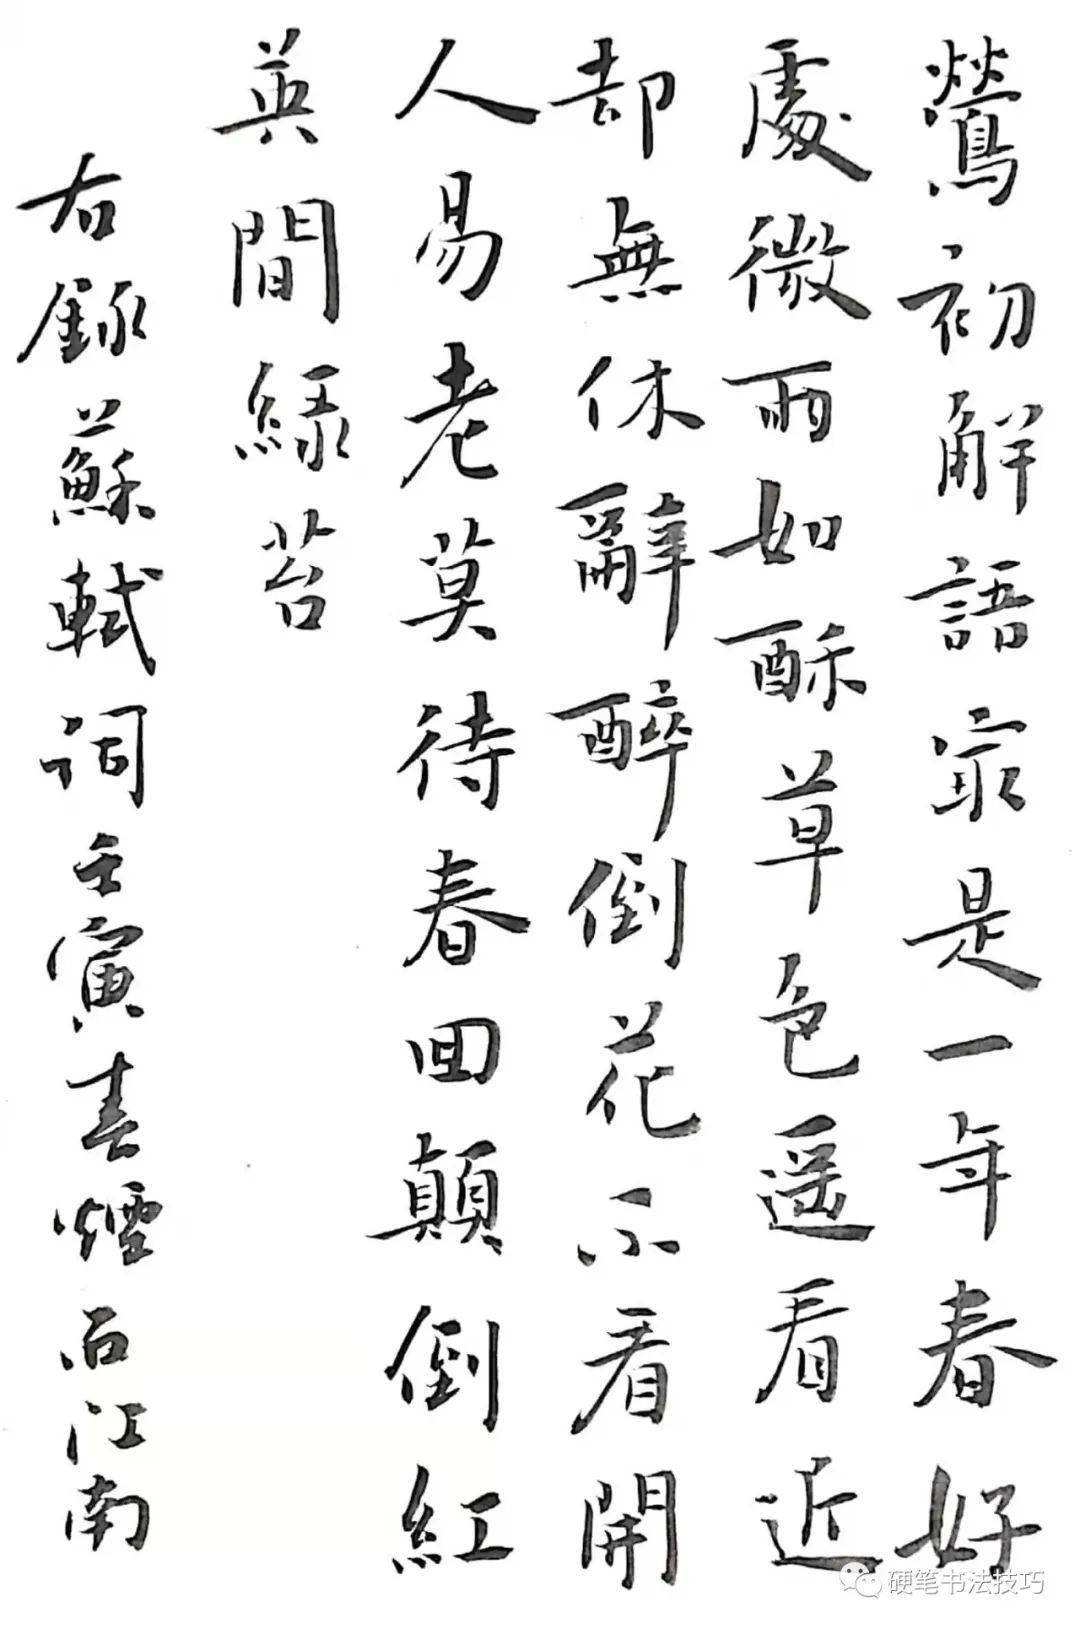 鶯初解語最是一年春好
處微雨如酥草色遥看近
却無休辭醉倒花不看開
人易老莫待春回顛倒紅
英間緑苔
右録蘇軾詞壬寅春煙石江南
硬笔书法技巧